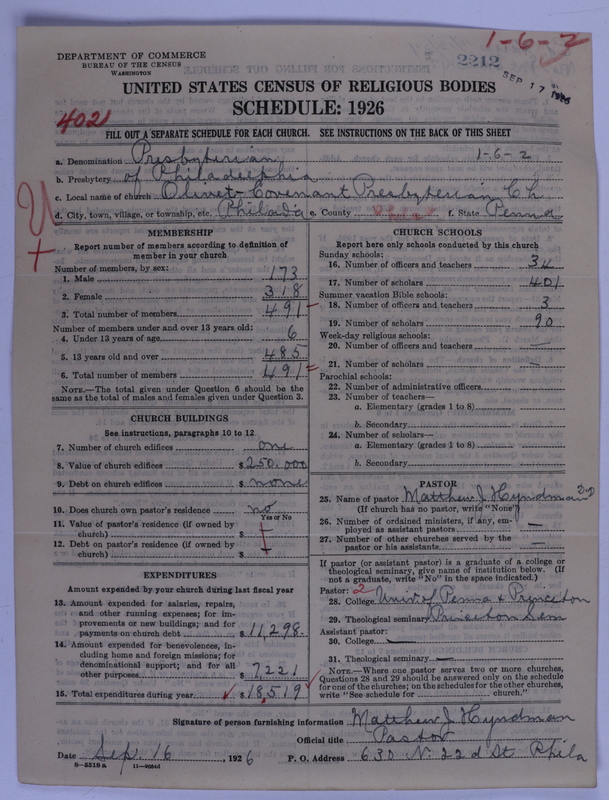 1-6-2
DEPARTMENT OF COMMERCE
BUREAU OF THE CENSUS
WASHINGTON
2212
SEP 17 1926
UNITED STATES CENSUS OF RELIGIOUS BODIES
SCHEDULE: 1926
4021
FILL OUT A SEPARATE SCHEDULE FOR EACH CHURCH. SEE INSTRUCTIONS ON THE BACK OF THIS SHEET
a. Denomination Presbyterian 1-6-2
b. Presbytery of Philadelphia
c. Local name of church Olivet-Covenant Presbyterian Ch
d. City, town, village, or township, etc. Philad'a e. County Phila f. State Penna
MEMBERSHIP
Report number of members according to definition of
member in your church
Number of members, by sex:
1. Male 173
2. Female 318
3. Total number of members 491
Number of members under and over 13 years old:
4. Under 13 years of age 6
5. 13 years old and over 485
6. Total number of members 491
NOTE.—The total given under Question 6 should be the
same as the total of males and females given under Question 3.
CHURCH BUILDINGS
See instructions, paragraphs 10 to 12
7. Number of church edifices one
8. Value of church edifices $250.000
9. Debt on church edifices $ none
10. Does church own pastor's residence no
Yes or No
11. Value of pastor's residence (if owned by
church) $
12. Debt on pastor's residence (if owned by
church) $
EXPENDITURES
Amount expended by your church during last fiscal year
13. Amount expended for salaries, repairs,
and other running expenses; for im-
provements or new buildings; and for
payments on church debt $11,298.
14. Amount expended for benevolences, in-
cluding home and foreign missions; for
denominational support; and for all
other purposes $7,221
15. Total expenditures during year $18,519
CHURCH SCHOOLS
Report here only schools conducted by this church
Sunday schools:
16. Number of officers and teachers 34
17. Number of scholars 401
Summer vacation Bible schools:
18. Number of officers and teachers 3
19. Number of scholars 90
Week-day religious schools:
20. Number of officers and teachers —
21. Number of scholars —
Parochial schools:
22. Number of administrative officers
23. Number of teachers—
a. Elementary (grades 1 to 8)
b. Secondary
24. Number of scholars—
a. Elementary (grades 1 to 8)
b. Secondary
PASTOR
25. Name of pastor Matthew J. Hyndman
(If church has no pastor, write "None")
26. Number of ordained ministers, if any, em-
ployed as assistant pastors —
27. Number of other churches served by the
pastor or his assistants —
If pastor (or assistant pastor) is a graduate of a college or
theological seminary, give name of institution below. (If
not a graduate, write "No" in the space indicated.)
Pastor: 2
28. College Univ. of Penna & Princeton
29. Theological seminary Princeton Sem
Assistant pastor:
30. College —
31. Theological seminary —
NOTE.—Where one pastor serves two or more churches,
Questions 28 and 29 should be answered only on the schedule
for one of the churches; on the schedules for the other churches,
write "See schedule for ........ church."
Signature of person furnishing information Matthew J. Hyndman
Official title Pastor
Date Sep. 16, 1926 P. O. Address 630 N. 22d St Phila
8—5518a 11—9204d